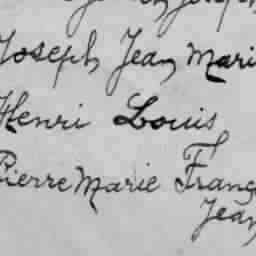 Joseph Jean Mari
Henri Louis
Pierre Marie Franç
Jean